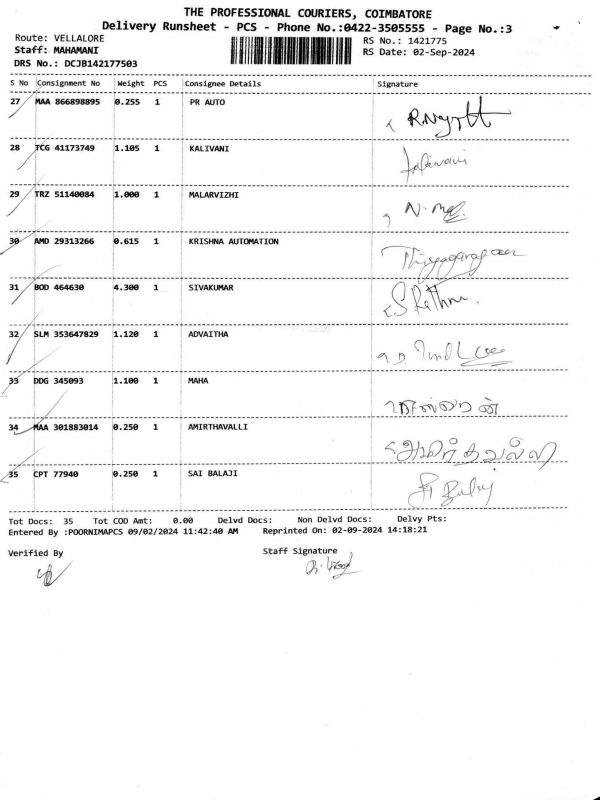 THE PROFESSIONAL COURIERS, COIMBATORE
Delivery Runsheet - PCS - Phone No.:0422-3505555 - Page No.:3
Route: VELLALORE
RS No.: 1421775
Staff: MAHAMANI
RS Date: 02-Sep-2024
DRS No.: DCJB142177503
S No Consignment No Weight PCS Consignee Details Signature
27 MAA 866898895 0.255 1 PR AUTO
28 TCG 41173749 1.105 1 KALIVANI
29 TRZ 51140084 1.000 1 MALARVIZHI
30 AMD 29313266 0.615 1 KRISHNA AUTOMATION
31 BOD 464630 4.300 1 SIVAKUMAR
32 SLM 353647829 1.120 1 ADVAITHA
33 DDG 345093 1.100 1 MAHA
34 MAA 301883014 0.250 1 AMIRTHAVALLI அமிர்தவல்லி
35 CPT 77940 0.250 1 SAI BALAJI
Tot Docs: 35 Tot COD Amt: 0.00 Delvd Docs: Non Delvd Docs: Delvy Pts:
Entered By :POORNIMAPCS 09/02/2024 11:42:40 AM Reprinted On: 02-09-2024 14:18:21
Verified By Staff Signature